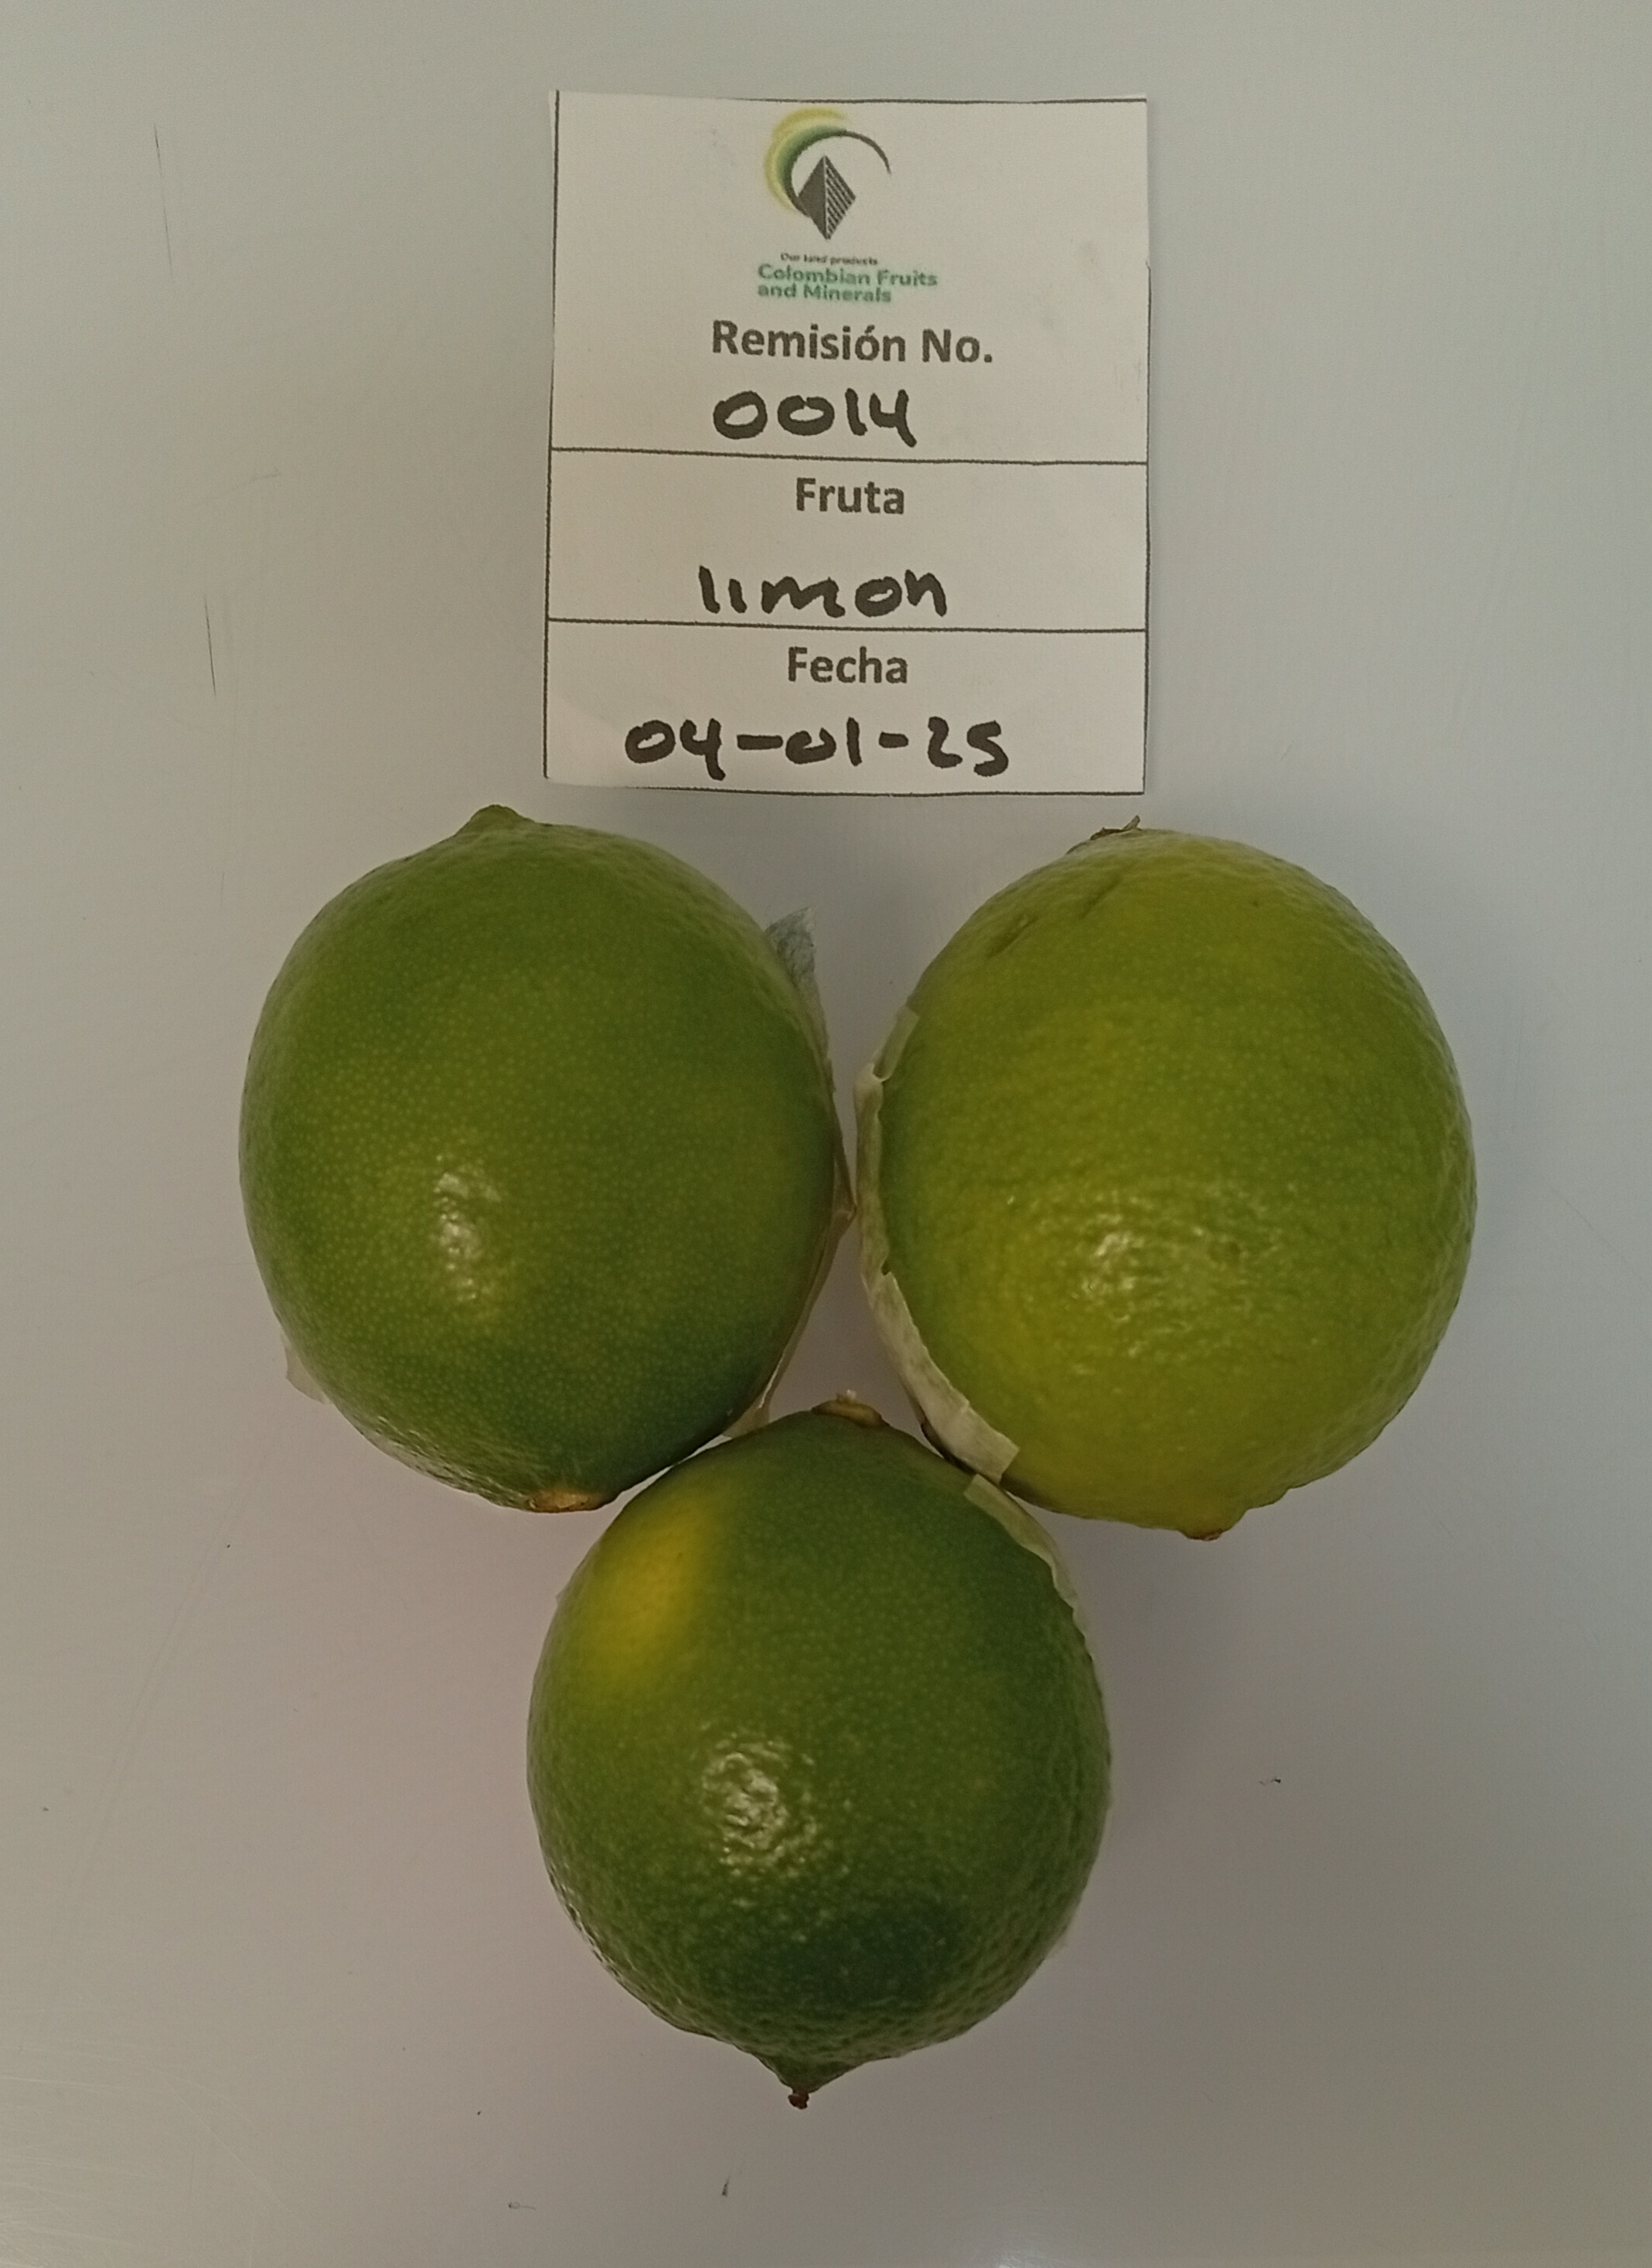 Our land products
Colombian Fruits
and Minerals
Remisión No.
0014
Fruta
limon
Fecha
04-01-25